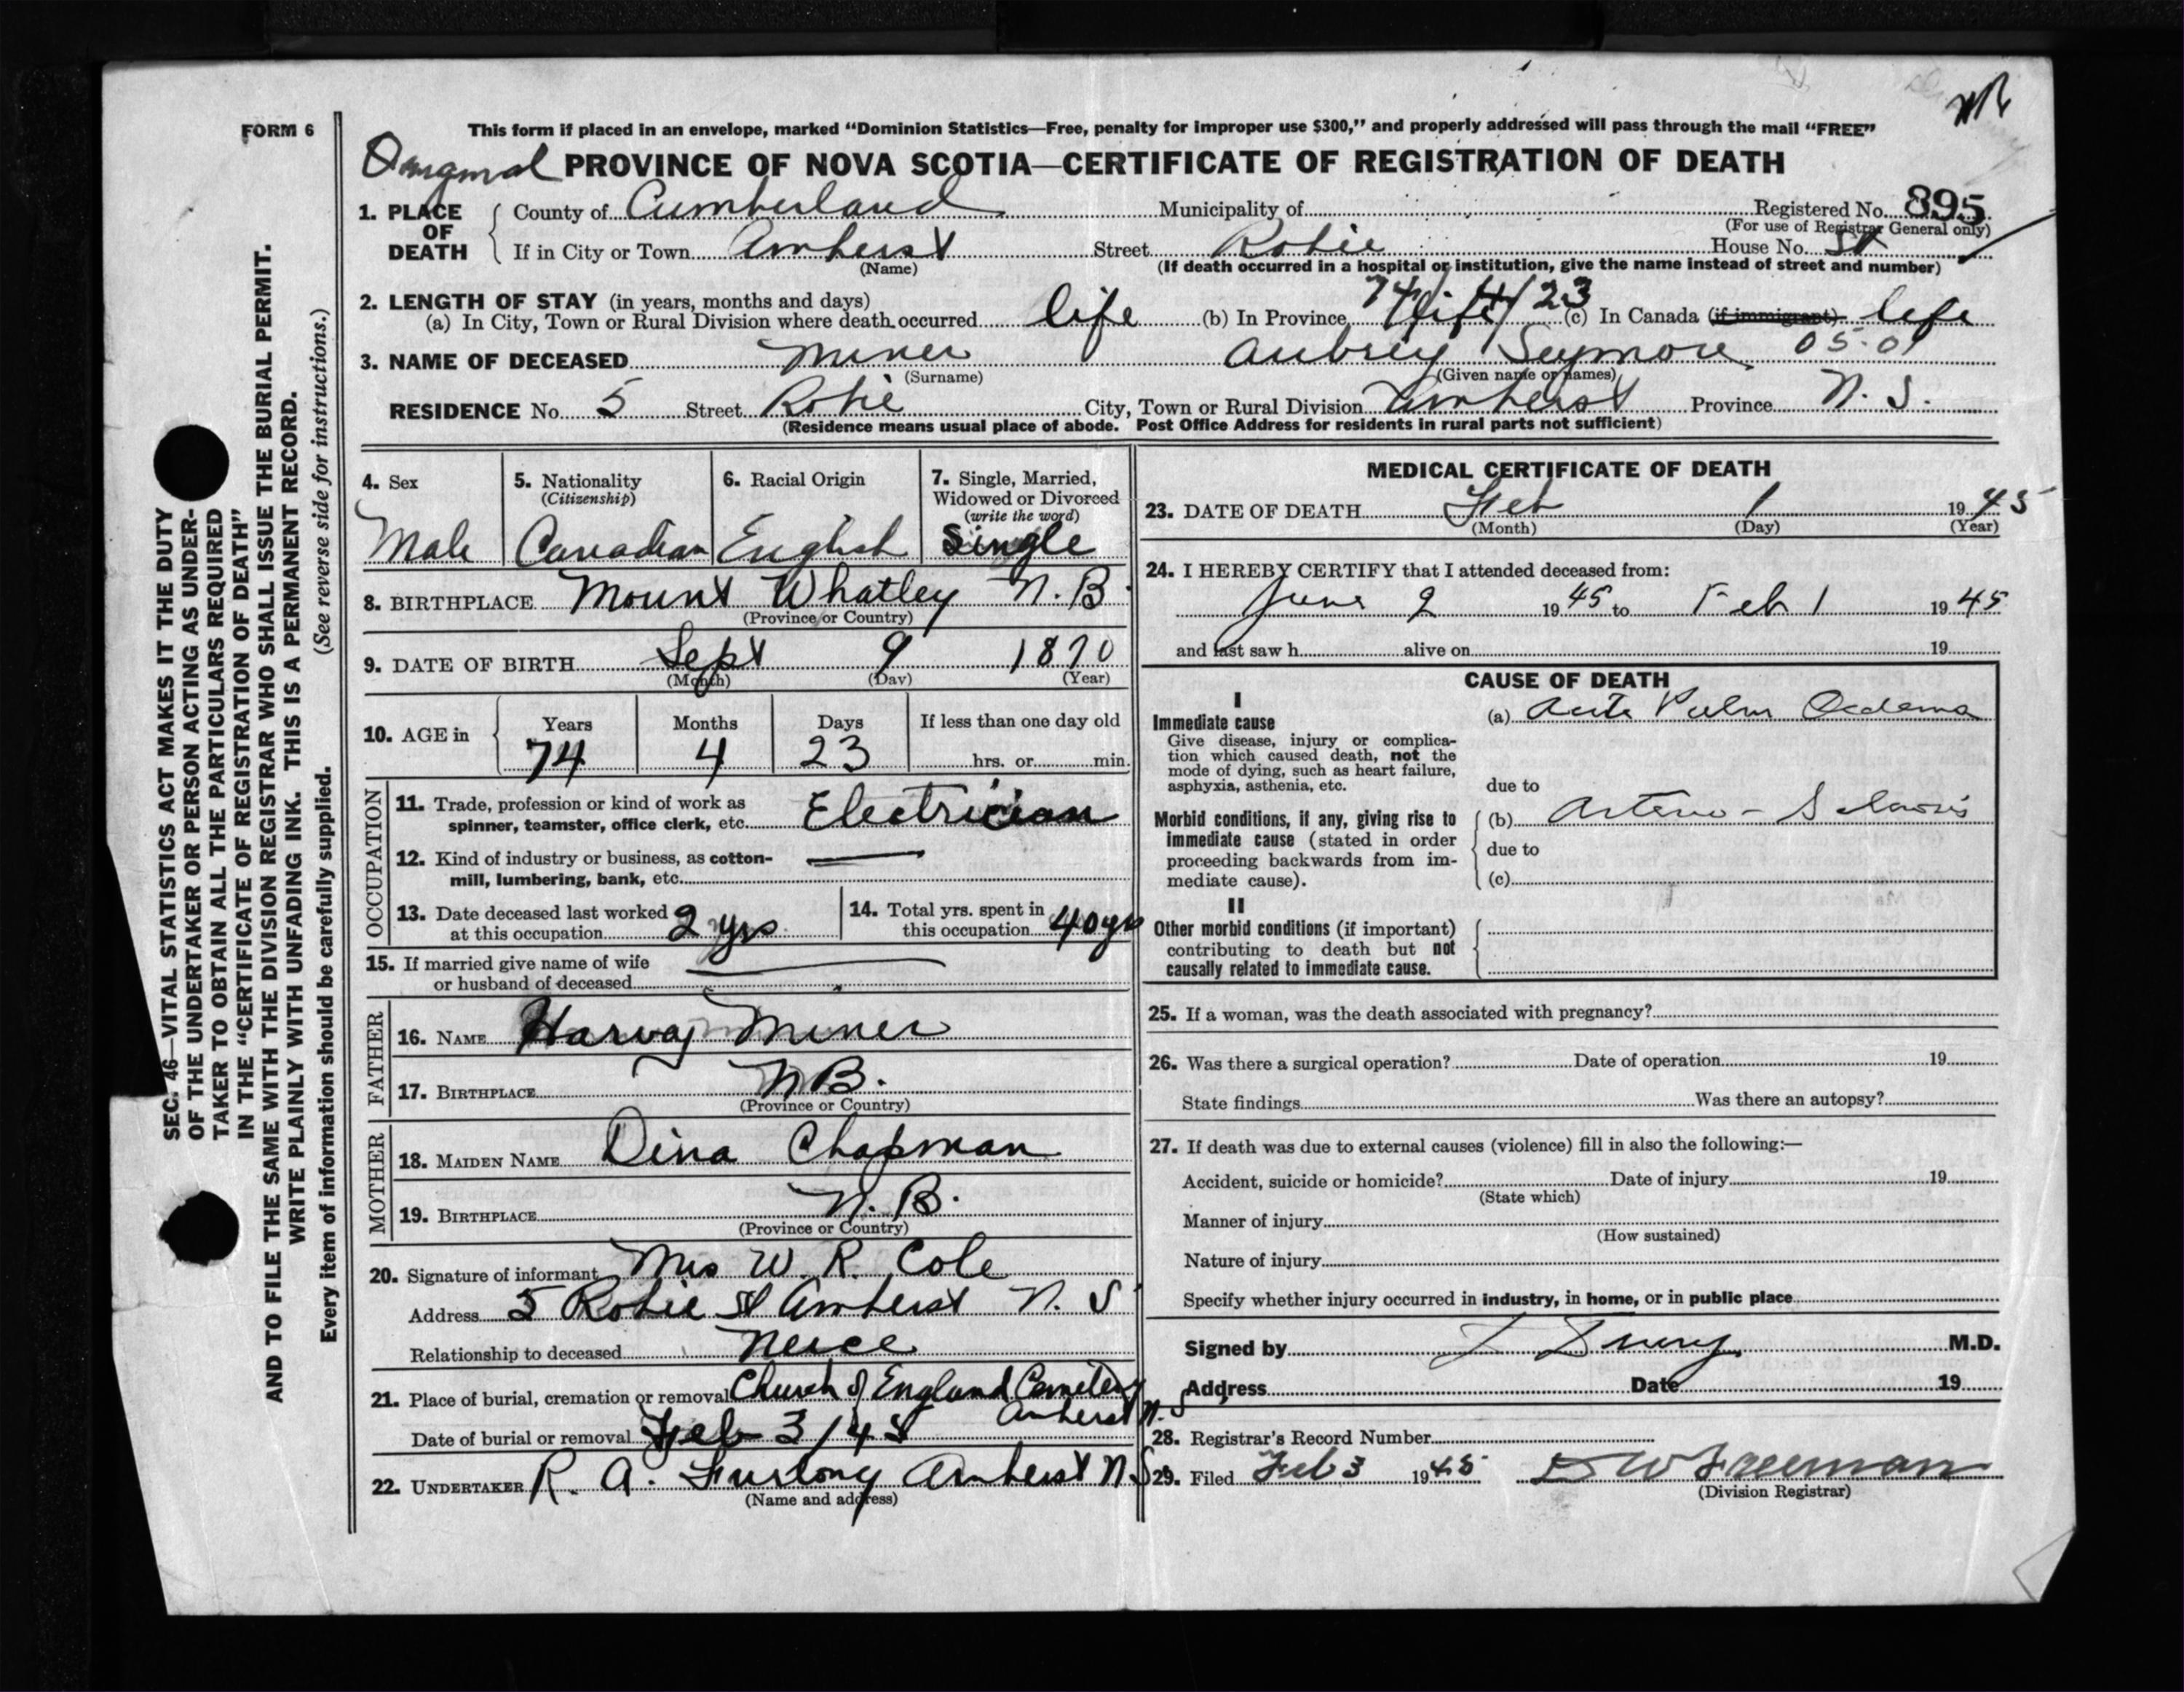 FORM 6
This form if placed in an envelope, marked “Dominion Statistics—Free, penalty for improper use $300,” and properly addressed will pass through the mail “FREE”
Original PROVINCE OF NOVA SCOTIA—CERTIFICATE OF REGISTRATION OF DEATH
1. PLACE OF DEATH County of Cumberland Municipality of Registered No. 895
(For use of Registrar General only)
If in City or Town Amherst Street Robie House No. St
(Name) (If death occurred in a hospital or institution, give the name instead of street and number)
2. LENGTH OF STAY (in years, months and days) 74/4/23
(a) In City, Town or Rural Division where death occurred life (b) In Province life (c) In Canada (if immigrant) life
3. NAME OF DECEASED Miner Aubrey Seymore 05.01
(Surname) (Given name or names)
RESIDENCE No. 5 Street Robie City, Town or Rural Division Amherst Province N. S.
(Residence means usual place of abode. Post Office Address for residents in rural parts not sufficient)
4. Sex 5. Nationality (Citizenship) 6. Racial Origin 7. Single, Married, Widowed or Divorced (write the word)
Male Canadian English Single
8. BIRTHPLACE Mount Whatley N.B
(Province or Country)
9. DATE OF BIRTH Sept 9 1870
(Month) (Day) (Year)
10. AGE in Years Months Days If less than one day old
74 4 23 hrs. or min.
OCCUPATION
11. Trade, profession or kind of work as
spinner, teamster, office clerk, etc. Electrician
12. Kind of industry or business, as cotton-
mill, lumbering, bank, etc.
13. Date deceased last worked at this occupation 2 yrs
14. Total yrs. spent in this occupation 40 yrs
15. If married give name of wife
or husband of deceased
FATHER
16. NAME Harvay Miner
17. BIRTHPLACE N B.
(Province or Country)
MOTHER
18. MAIDEN NAME Dina Chapman
19. BIRTHPLACE N. B.
(Province or Country)
20. Signature of informant Mrs W. R. Cole
Address 5 Robie St Amherst N. S
Relationship to deceased Neice
21. Place of burial, cremation or removal Church of England Cemetery
Amherst N. S
Date of burial or removal Feb 3/45
22. UNDERTAKER R. A. Furlong Amherst N.S
(Name and address)
MEDICAL CERTIFICATE OF DEATH
23. DATE OF DEATH Feb 1 1945
(Month) (Day) (Year)
24. I HEREBY CERTIFY that I attended deceased from:
June 9 1945 to Feb 1 1945
and last saw h alive on 19
CAUSE OF DEATH
I
Immediate cause (a) Acute Pulm Oedema
Give disease, injury or complica-
tion which caused death, not the
mode of dying, such as heart failure,
asphyxia, asthenia, etc. due to
Morbid conditions, if any, giving rise to (b) Arterio-Sclerosis
immediate cause (stated in order
proceeding backwards from im- due to
mediate cause). (c)
II
Other morbid conditions (if important)
contributing to death but not
causally related to immediate cause.
25. If a woman, was the death associated with pregnancy?
26. Was there a surgical operation? Date of operation 19
State findings Was there an autopsy?
27. If death was due to external causes (violence) fill in also the following:—
Accident, suicide or homicide? Date of injury 19
(State which)
Manner of injury
(How sustained)
Nature of injury
Specify whether injury occurred in industry, in home, or in public place
Signed by M.D.
Address Date 19
28. Registrar's Record Number
29. Filed Feb 3 1945 Freeman
(Division Registrar)
SEC. 46—VITAL STATISTICS ACT MAKES IT THE DUTY
OF THE UNDERTAKER OR PERSON ACTING AS UNDER-
TAKER TO OBTAIN ALL THE PARTICULARS REQUIRED
IN THE “CERTIFICATE OF REGISTRATION OF DEATH”
AND TO FILE THE SAME WITH THE DIVISION REGISTRAR WHO SHALL ISSUE THE BURIAL PERMIT.
WRITE PLAINLY WITH UNFADING INK. THIS IS A PERMANENT RECORD.
Every item of information should be carefully supplied. (See reverse side for instructions.)